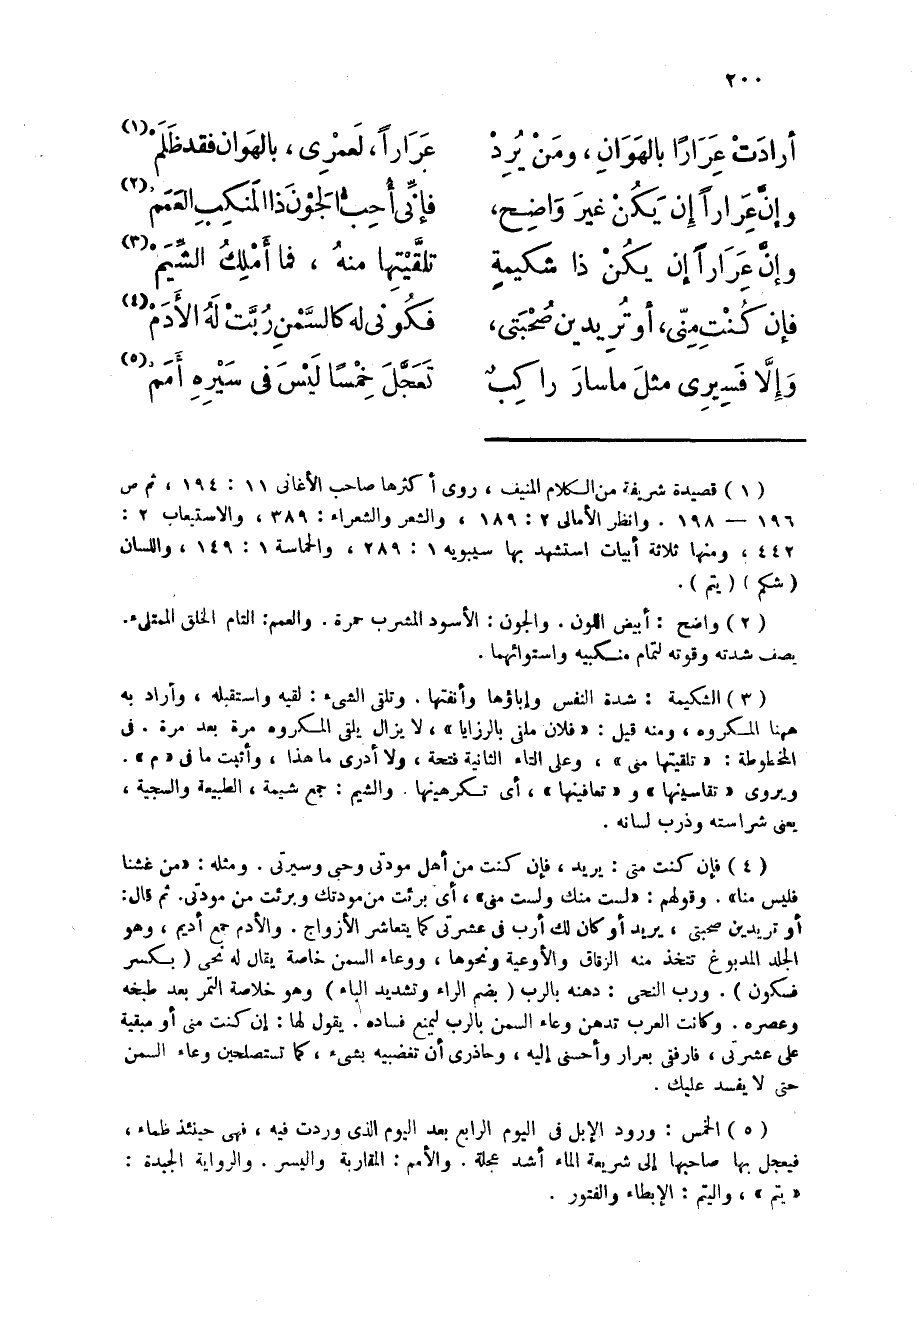 ٢٠٠
أرادَتْ عِرَارًا بالهَوَانِ، ومَنْ يُرِدْ عَرَاراً، لَعمْرِى، بالهَوَان فقد ظَلَمْ (١)
وإنَّ عَرَاراً إن يَكُنْ غيرَ وَاضِحٍ، فإنِّى أُحِبُّ الجَوْنَ ذَا المَنْكِبِ العَمَمْ (٢)
وإنَّ عَرَاراً إن يكُنْ ذا شكيمةٍ تلقَّيْتِها منهُ ، فما أَمْلِكُ الشِّيَمْ (٣)
فإن كُنْتِ مِنِّى، أو تُرِيدين صُحْبَتِى، فكُونى له كالسَّمْنِ رُبَّتْ لَهُ الأَدَمْ (٤)
وَإِلَّا فَسِيرِى مثلَ ماسارَ راكِبٌ تَعَجَّلَ خِمْسًا لَيْسَ فى سَيْرِهِ أَمَمْ (٥)
(١) قصيدة شريفة من الكلام المنيف ، روى أكثرها صاحب الأغانى ١١ : ١٩٤ ، ثم ص
١٩٦ — ١٩٨ . وانظر الأمالى ٢ : ١٨٩ ، والشعر والشعراء : ٣٨٩ ، والاستيعاب ٢ :
٤٤٢ ، ومنها ثلاثة أبيات استشهد بها سيبويه ١ : ٢٨٩ ، والحماسة ١ : ١٤٩ ، واللسان
(شكم) (يتم) .
(٢) واضح : أبيض اللون . والجون : الأسود المشرب حمرة . والعمم: التام الخلق الممتلىء.
يصف شدته وقوته لتمام منكبيه واستوائهما .
(٣) الشكيمة : شدة النفس وإباؤها وأنفتها . وتلقى الشىء : لقيه واستقبله ، وأراد به
ههنا المكروه ، ومنه قيل : «فلان ملقى بالرزايا» ، لا يزال يلقى المكروه مرة بعد مرة . فى
المخطوطة : «تلقيتها منى» ، وعلى التاء الثانية فتحة ، ولا أدرى ما هذا ، وأثبت ما فى «م» .
ويروى «تقاسينها» و «تعافينها» ، أى تكرهينها . والشيم : جمع شيمة ، الطبيعة والسجية ،
يعنى شراسته وذرب لسانه .
(٤) فإن كنت منى : يريد ، فإن كنت من أهل مودتى وحبى وسيرتى . ومثله : «من غشنا
فليس منا» . وقولهم : «لست منك ولست منى» ، أى برئت من مودتك وبرئت من مودتى. ثم قال:
أو تريدين صحبتى ، يريد أو كان لك أرب فى عشرتى كما يتعاشر الأزواج . والأدم جمع أديم ، وهو
الجلد المدبوغ تتخذ منه الزقاق والأوعية ونحوها ، ووعاء السمن خاصة يقال له نحى (بكسر
فسكون) . ورب النحى : دهنه بالرب (بضم الراء وتشديد الباء) وهو خلاصة التمر بعد طبخه
وعصره . وكانت العرب تدهن وعاء السمن بالرب ليمنع فساده . يقول لها : إن كنت منى أو مبقية
على عشرتى ، فارفقى بعرار وأحسنى إليه ، وحاذرى أن تغضبيه بشىء ، كما تستصلحين وعاء السمن
حتى لا يفسد عليك .
(٥) الخمس : ورود الإبل فى اليوم الرابع بعد اليوم الذى وردت فيه ، فهى حينئذ ظماء ،
فيعجل بها صاحبها إلى شريعة الماء أشد عجلة . والأمم : المقاربة واليسر . والرواية الجيدة :
«يتم» ، واليتم : الإبطاء والفتور .